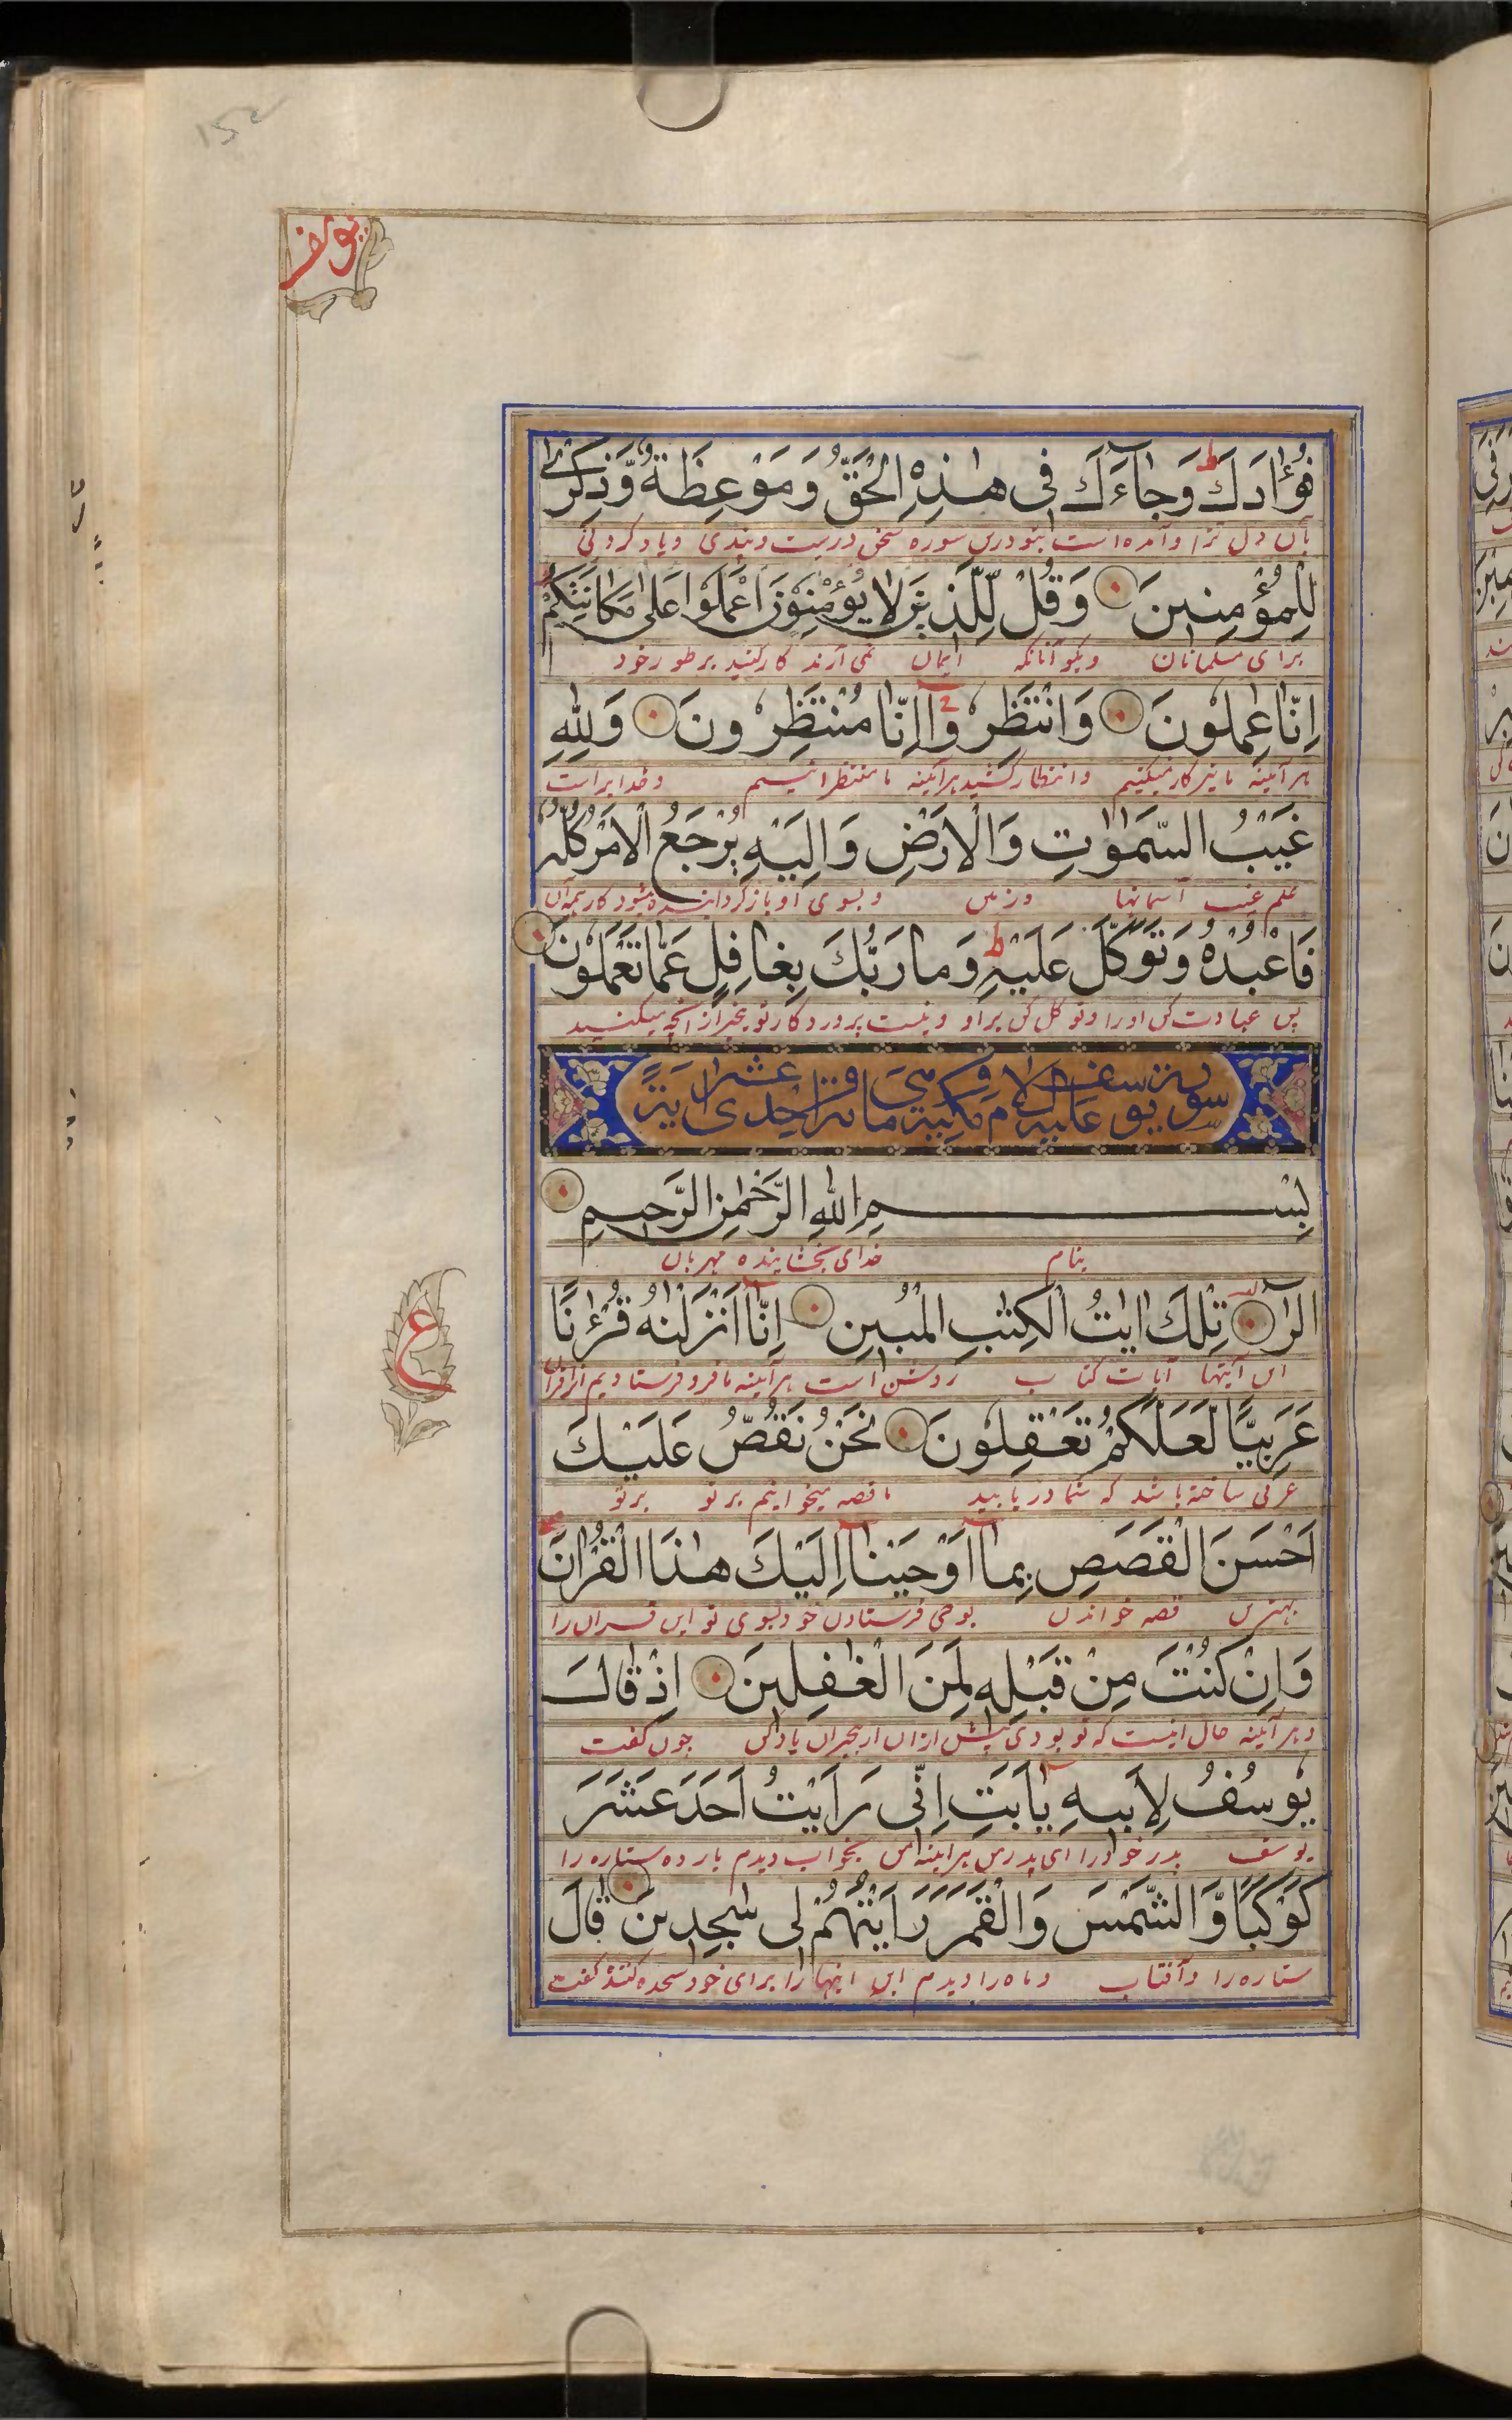 152
يوسف
فُؤَادَكَ ط وَجَآءَكَ فِى هٰذِهِ الْحَقُّ وَمَوْعِظَةٌ وَّذِكْرٰى
بآن دل ترا و آمده است بتو درین سوره سخن درست و پندی و یاد کردنی
لِلْمُؤْمِنِينَ وَقُلْ لِّلَّذِينَ لَا يُؤْمِنُوْنَ اعْمَلُوْا عَلٰى مَكَانَتِكُمْ
برای مسلمانان و بگو آنانکه ایمان نمی آرند کار کنید بر طور خود
اِنَّا عٰمِلُونَ وَانْتَظِرُوْا اِنَّا مُنْتَظِرُونَ وَلِلّٰهِ
هر آئینه ما نیز کار میکنیم و انتظار کشید هر آئینه ما منتظرانیم و خدایراست
غَيْبُ السَّمٰوٰتِ وَالْاَرْضِ وَاِلَيْهِ يُرْجَعُ الْاَمْرُ كُلُّهٗ
علم غیب آسمانها و زمین و بسوی او باز گردانیده میشود کار همه آن
فَاعْبُدْهُ وَتَوَكَّلْ عَلَيْهِ ط وَمَا رَبُّكَ بِغَافِلٍ عَمَّا تَعْمَلُوْنَ
پس عبادت کن او را و توکل کن بر او و نیست پروردگار تو بیخبر از آنچه میکنید
سورة يوسف عليه السلام مكية وهى مائة واحدى عشر اية
بِسْمِ اللّٰهِ الرَّحْمٰنِ الرَّحِيمِ
بنام خدای بخشاینده مهربان
الٓرٰ تِلْكَ اٰيٰتُ الْكِتٰبِ الْمُبِينِ اِنَّا اَنْزَلْنٰهُ قُرْءٰنًا
این آیتها آیات کتاب روشن است هر آئینه ما فرو فرستادیم قرآن
ع
عَرَبِيًّا لَّعَلَّكُمْ تَعْقِلُونَ نَحْنُ نَقُصُّ عَلَيْكَ
عربی ساخته باشد که شما دریابید ما قصه میخوانیم بر تو بر تو
اَحْسَنَ الْقَصَصِ بِمَآ اَوْحَيْنَآ اِلَيْكَ هٰذَا الْقُرْاٰنَ
بهترین قصه خواندن بوحی فرستادن خود بسوی تو این قرآن را
وَاِنْ كُنْتَ مِنْ قَبْلِهٖ لَمِنَ الْغٰفِلِينَ اِذْ قَالَ
و هر آئینه حال اینست که تو بودی پیش از آن از بیخبران یاد کن چون گفت
يُوسُفُ لِاَبِيهِ يٰٓاَبَتِ اِنِّى رَاَيْتُ اَحَدَ عَشَرَ
یوسف پدر خود را ای پدر من هر آئینه من بخواب دیدم یازده ستاره را
كَوْكَبًا وَّالشَّمْسَ وَالْقَمَرَ رَاَيْتُهُمْ لِى سٰجِدِينَ قَالَ
ستاره را و آفتاب و ماه را دیدم این اینها را برای خود سجده کننده گفت